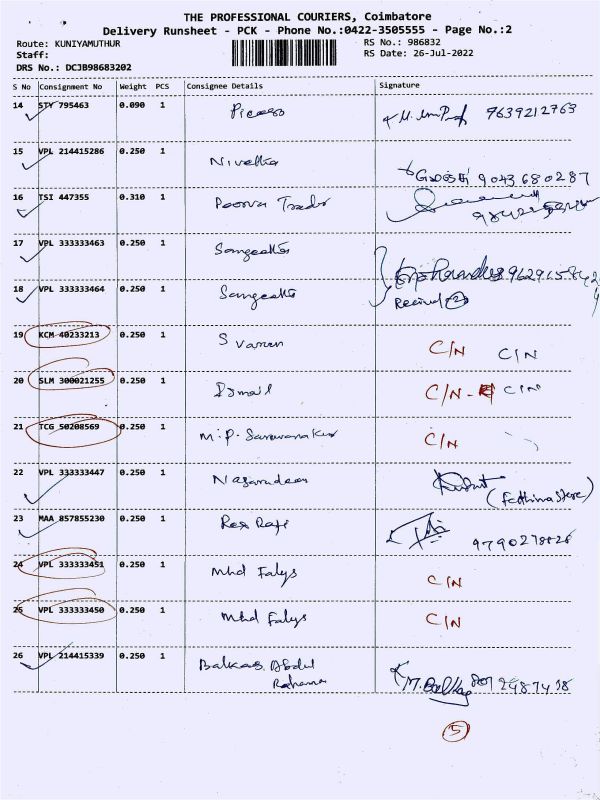 THE PROFESSIONAL COURIERS, Coimbatore
Delivery Runsheet - PCK - Phone No.:0422-3505555 - Page No.:2
Route: KUNIYAMUTHUR RS No.: 986832
Staff: RS Date: 26-Jul-2022
DRS No.: DCJB98683202
S No Consignment No Weight PCS Consignee Details Signature
14 STY 795463 0.090 1 Picasso 9639212763
15 VPL 214415286 0.250 1 Nivetha 9043680287
16 TSI 447355 0.310 1 Poorva Trader
17 VPL 333333463 0.250 1 Sangeetha
18 VPL 333333464 0.250 1 Sangeetha Received 2
19 KCM 40233213 0.250 1 S C/N C/N
20 SLM 300021255 0.250 1 Ismail C/N - C/N
21 TCG 50208569 0.250 1 M.P. Saravanakumar C/N
22 VPL 333333447 0.250 1 (Fathima Store)
23 MAA 857855230 0.250 1 Rex Raji
24 VPL 333333451 0.250 1 Mhd Falys C/N
25 VPL 333333450 0.250 1 Mhd Falys C/N
26 VPL 214415339 0.250 1 Balkas Abdul
Rahman
5